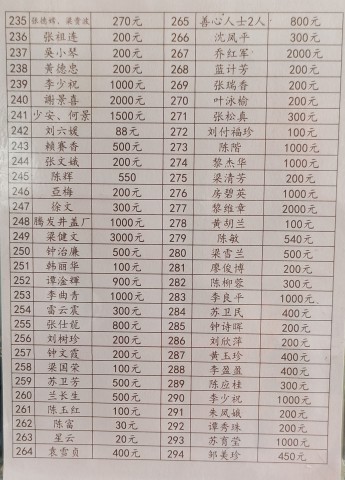 235 张德娣、梁貴波 270元 265 善心人士2人 800元
236 张祖连 200元 266 沈凤平 300元
237 吴小琴 200元 267 乔红军 2000元
238 黄德忠 200元 268 蓝计芳 200元
239 李少祝 1000元 269 张瑞香 200元
240 谢景喜 2000元 270 叶泳榆 200元
241 少安、何景 1500元 271 张松真 300元
242 刘六媛 88元 272 刘付福珍 100元
243 赖赛香 500元 273 陈階 1000元
244 张文娥 200元 274 黎杰华 1000元
245 陈辉 550 275 梁清芳 200元
246 亚梅 200元 276 房碧英 1000元
247 徐文 300元 277 黎维章 2000元
248 腾发井盖厂 1000元 278 黄胡兰 100元
249 梁健文 3000元 279 陈敏 540元
250 钟治廉 500元 280 梁雪兰 500元
251 韩丽华 100元 281 廖俊博 200元
252 谭淦輝 900元 282 陈柳蓉 300元
253 李曲青 1000元 283 李良平 1000元
254 雷云震 300元 284 苏卫民 400元
255 张仕龍 800元 285 钟诗晖 200元
256 刘树珍 200元 286 刘欣萍 200元
257 钟文霞 200元 287 黄玉珍 400元
258 梁国荣 100元 288 李盈盈 400元
259 苏卫芳 500元 289 陈应桂 300元
260 兰长生 500元 290 李少祝 1000元
261 陈玉红 100元 291 朱凤娥 200元
262 陈富 30元 292 谭秀珠 200元
263 星云 20元 293 苏育莹 1000元
264 袁雪贞 400元 294 邹美珍 450元